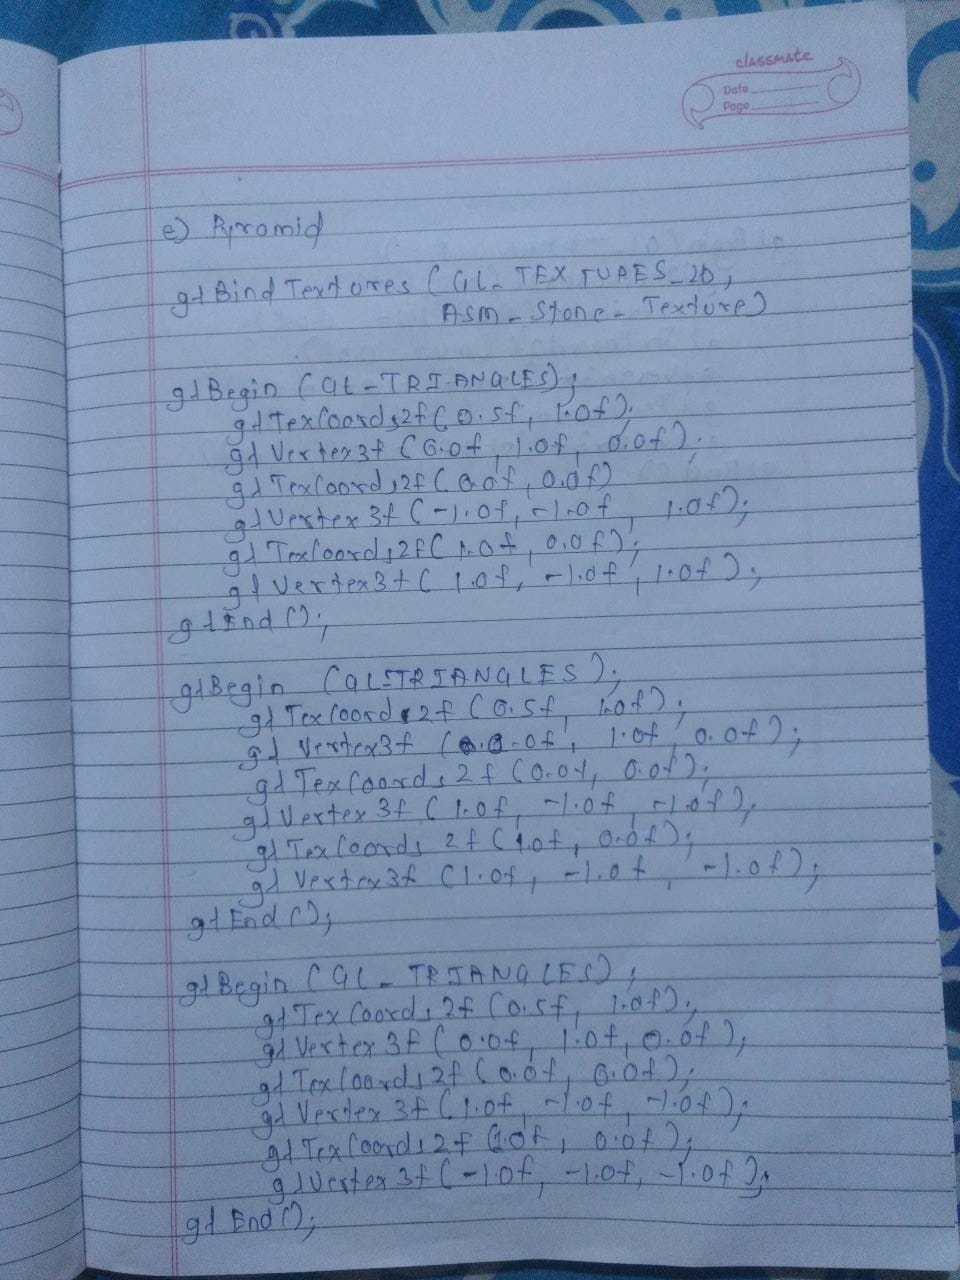 classmate
Date
Page
e) Pyramid
glBind Textures (GL_TEXTURES_2D,
ASM_Stone_Texture)
glBegin (GL_TRIANGLES);
glTexCoords2f(0.5f, 1.0f);
glVertex3f (0.0f, 1.0f, 0.0f);
glTexCoords2f(0.0f, 0.0f)
glVertex3f (-1.0f, -1.0f, 1.0f);
glTexCoords2f(1.0f, 0.0f);
glVertex3f (1.0f, -1.0f, 1.0f);
glEnd();
glBegin (GL_TRIANGLES);
glTexCoord2f (0.5f, 1.0f);
gl Vertex3f (0.0f, 1.0f, 0.0f);
glTexCoords2f (0.0f, 0.0f);
glVertex3f (1.0f, -1.0f, -1.0f);
glTexCoords 2f (1.0f, 0.0f);
gl Vertex3f (1.0f, -1.0f, -1.0f);
glEnd();
glBegin (GL_TRIANGLES);
glTexCoords2f (0.5f, 1.0f);
glVertex3f (0.0f, 1.0f, 0.0f);
glTexCoords2f (0.0f, 0.0f);
glVertex3f (1.0f, -1.0f, -1.0f);
glTexCoords2f (1.0f, 0.0f);
glVertex3f (-1.0f, -1.0f, -1.0f);
glEnd();